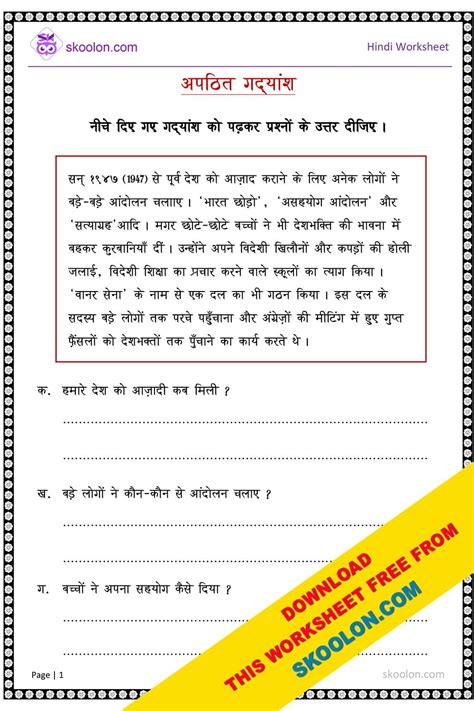 skoolon.com
Hindi Worksheet
अपठित गद्यांश
नीचे दिए गए गद्यांश को पढ़कर प्रश्नों के उत्तर दीजिए ।
सन् १९४७ (1947) से पूर्व देश को आज़ाद कराने के लिए अनेक लोगों ने
बड़े-बड़े आंदोलन चलाए । 'भारत छोड़ो', 'असहयोग आंदोलन' और
'सत्याग्रह'आदि । मगर छोटे-छोटे बच्चों ने भी देशभक्ति की भावना में
बहकर कुरबानियाँ दीं । उन्होंने अपने विदेशी खिलौनों और कपड़ों की होली
जलाई, विदेशी शिक्षा का प्रचार करने वाले स्कूलों का त्याग किया ।
'वानर सेना' के नाम से एक दल का भी गठन किया । इस दल के
सदस्य बड़े लोगों तक परचे पहुँचाना और अंग्रेज़ों की मीटिंग में हुए गुप्त
फ़ैंसलों को देशभक्तों तक पुँचाने का कार्य करते थे ।
क. हमारे देश को आज़ादी कब मिली ?
ख. बड़े लोगों ने कौन-कौन से आंदोलन चलाए ?
ग. बच्चों ने अपना सहयोग कैसे दिया ?
DOWNLOAD
THIS WORKSHEET FREE FROM
SKOOLON.COM
Page | 1
skoolon.com